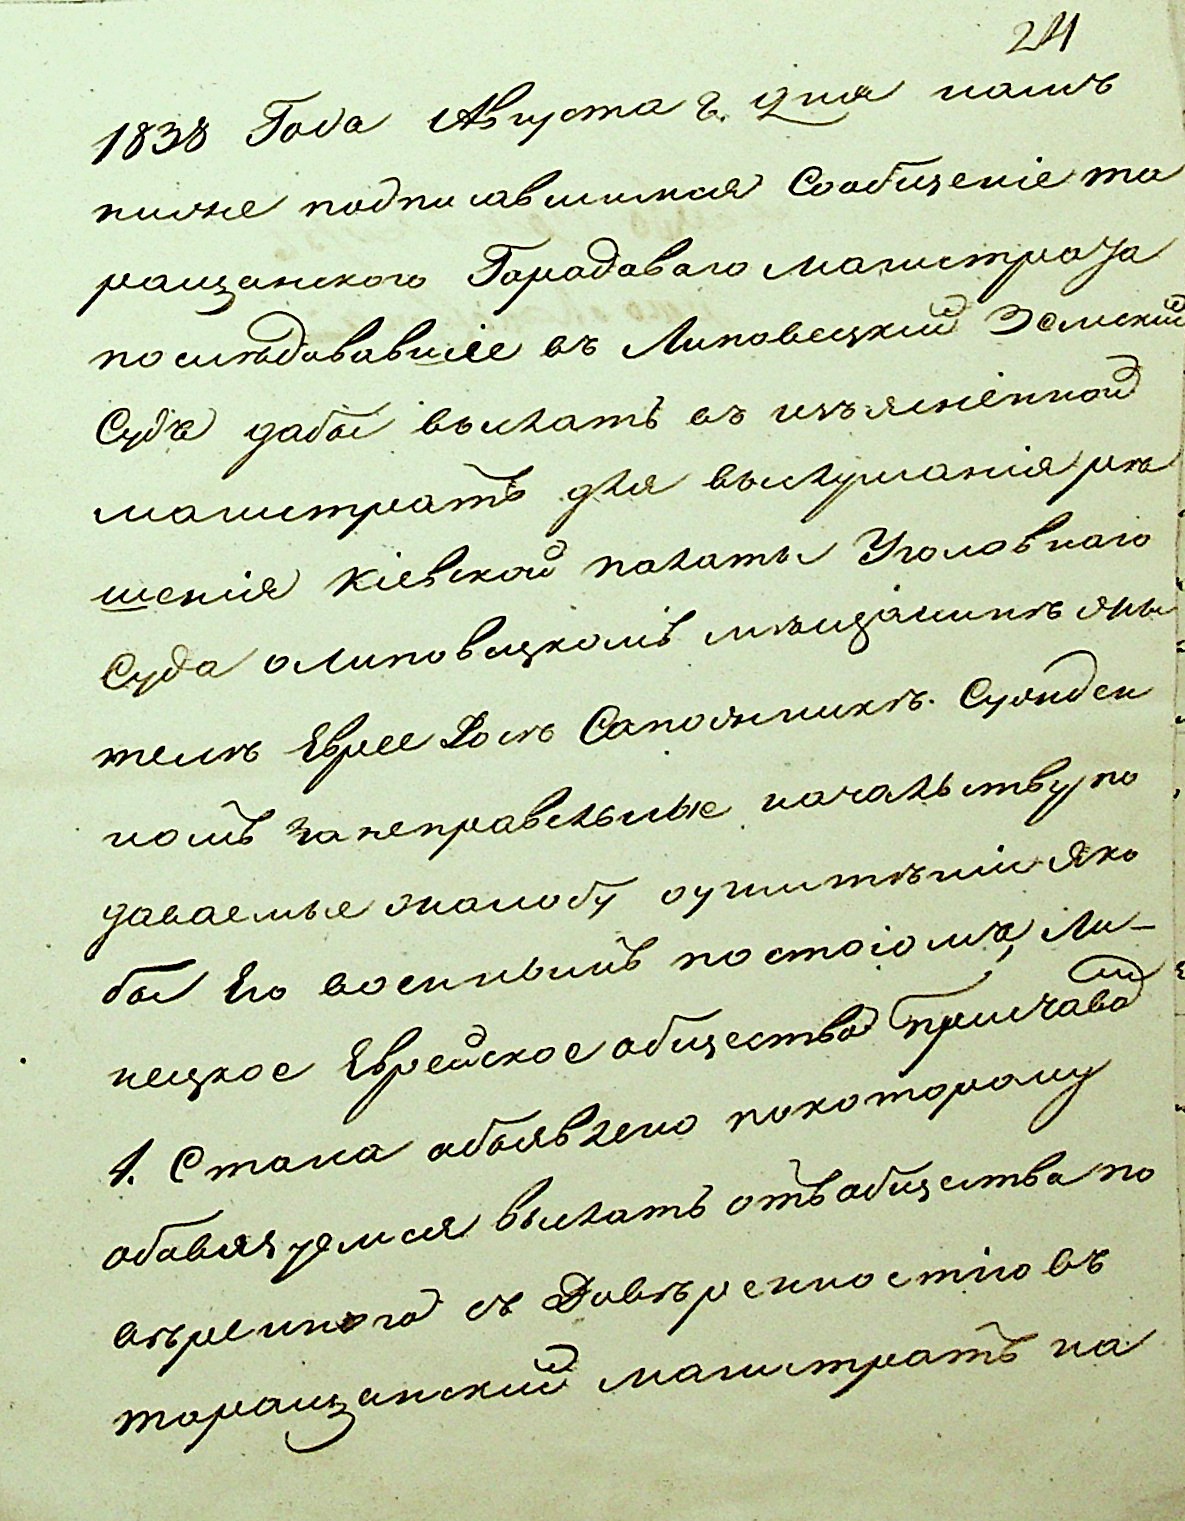 24
1838 Года Августа 2. дня намъ
ниже подписавшимся Сообщеніе та
ращанского Городоваго магистрата
последовавшіе въ Липовецкий Земский
Судъ дабы выслать въ изъясненной
магистратъ для выслушанія ре
шенія Кіевской палаты Уголовнаго
Суда о Липовецкомъ мещанинѣ жи
телѣ Еврее Сапожникѣ. Сужден
номъ за неправельные начальству по
даваемые жалобу оутитѣніи яко
бы Его военнымъ постоіомъ, Ли-
пецкое Еврейское общество
1. Стана объявлено покоторому
обовязуемся выслать отъ общества по
вѣренного съ Довѣренностію въ
таращанский магистратъ на